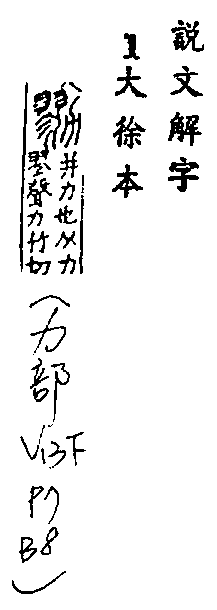 説文解字
1大徐本
勠 并力也从力
翏聲力竹切
(力部 V13下 P7 B8)